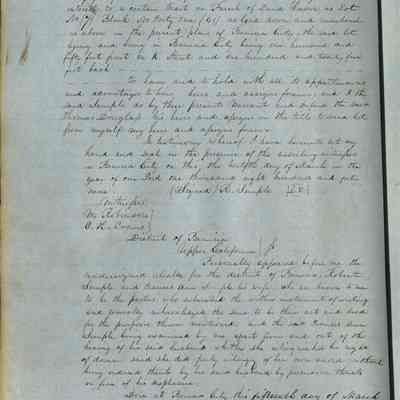 to a certain tract or Parcel of Land known as Lot
No (7) Block No Forty One (41) as laid down and numbered
as above in the present plan of Benicia City, the said lot
lying and being in Benicia City being one hundred and
fifty feet front on K Street and one hundred and twenty five
feet back
to have and to hold with all to appurtenances
and advantages to him heirs and assigns forever, and I the
said Semple do by these presents Warrant and defend the said
Thomas Douglas his heirs and assigns in the title to said lot
from myself my heirs and assigns forever
In testimony whereof I have hereunto set my
hand and seal in the presence of the subscribing witnesses
in Benicia City on this the twelfth day of March in the
year of our Lord One thousand eight hundred and forty
nine (Signed) R. Semple
Witnesses
Wm Robinson
District of Benicia
Upper California
Personally appeared before me the
undersigned Alcalde for the district of Benicia, Robert
Semple and Frances Ann Semple his wife who are known to me
to be the parties who subscribed the within instrument of writing
and severally acknowledged the same to be their act and deed
for the purpose therein mentioned and the said Frances Ann
Semple being examined by me apart from and out of the
hearing of her said husband whether she relinquished her right
of dower said she did freely willingly of her own accord without
being induced thereto by her said husband by persuasion threats
or fear of his displeasure
Done at Benicia City this fifteenth day of March